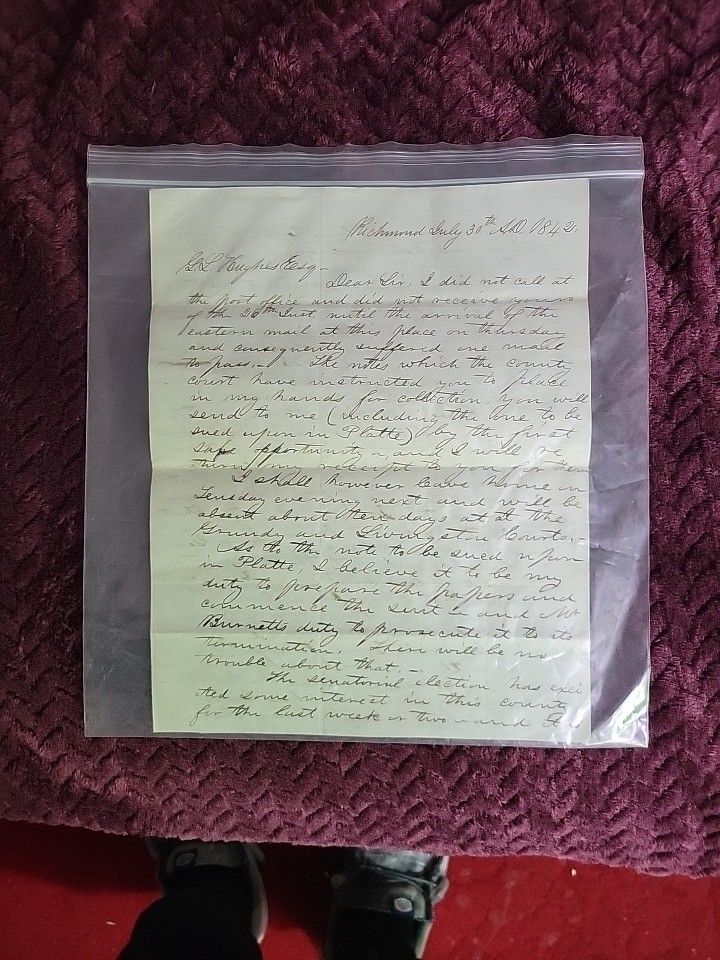 Richmond July 30th A.D. 1842.
G. L. Hughes Esq.
Dear Sir, I did not call at
the post office and did not receive yours
of the 26th Inst until the arrival of the
eastern mail at this place on thursday
and consequently suffered one mail
to pass.— The notes which the county
court have instructed you to place
in my hands for collection you will
send to me (including the one to be
sued upon in Platte) by the first
safe opportunity, and I will re
turn my receipt to you for them
I shall however leave home on
Tuesday evening next and will be
absent about ten days at at the
Grundy and Livingston Courts.—
As to the note to be sued upon
in Platte, I believe it to be my
duty to prepare the papers and
commence the suit and Mr
Burnetts duty to prosecute it to its
termination. There will be no
trouble about that.—
The senatorial election has exci
ted some interest in this county
for the last week or two — and